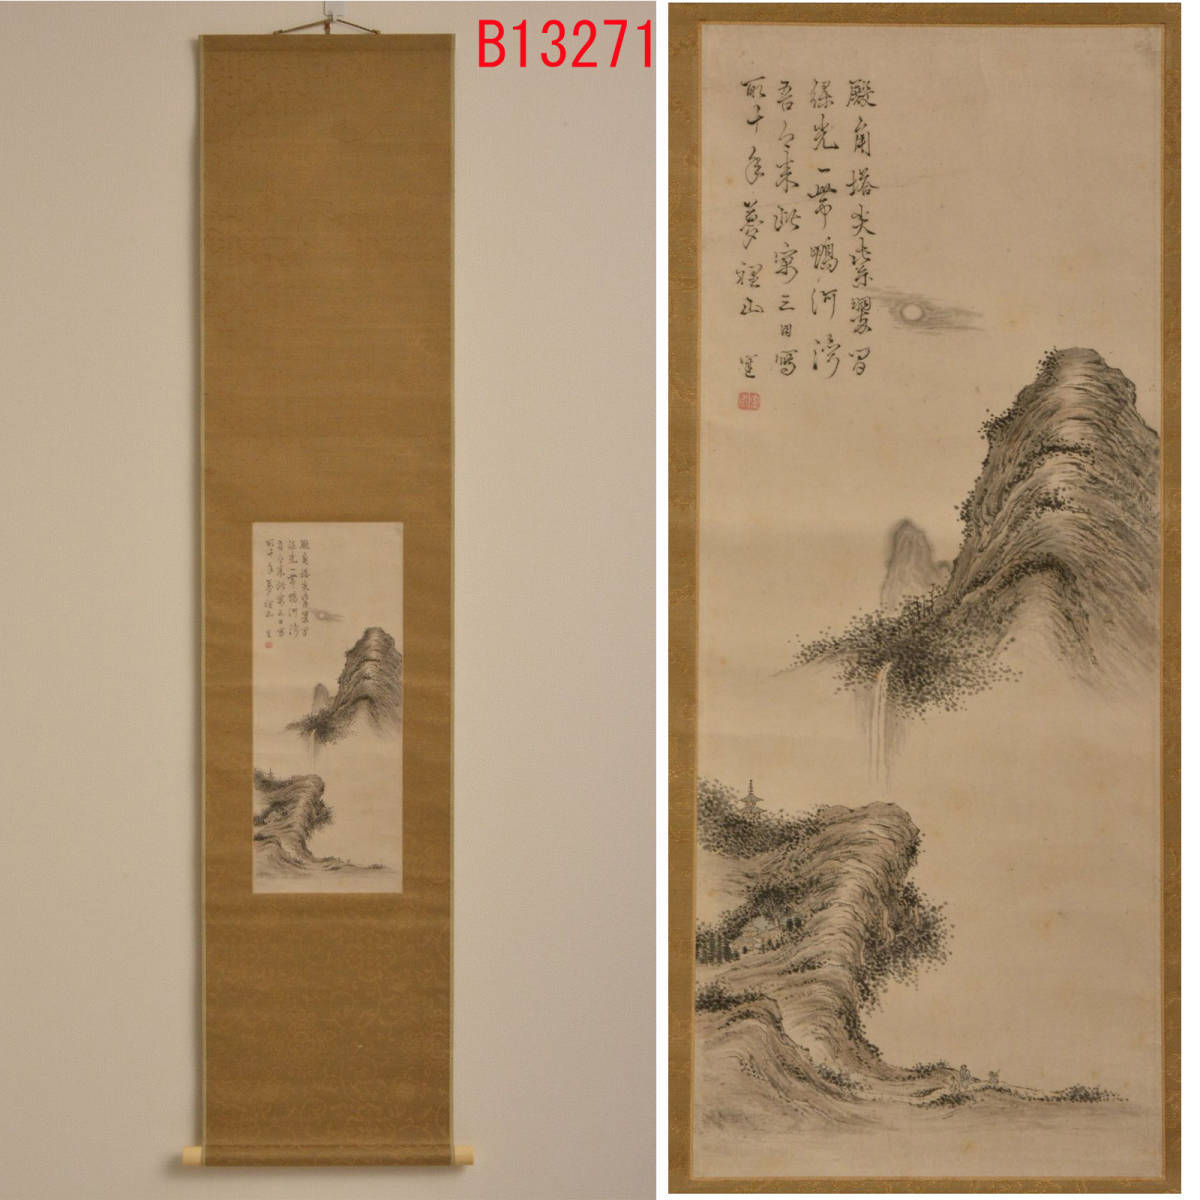 B13271
殿角塔尖紫翠間
緑光一帯鴨河湾
吾今来此三日寫
取十年夢裡山